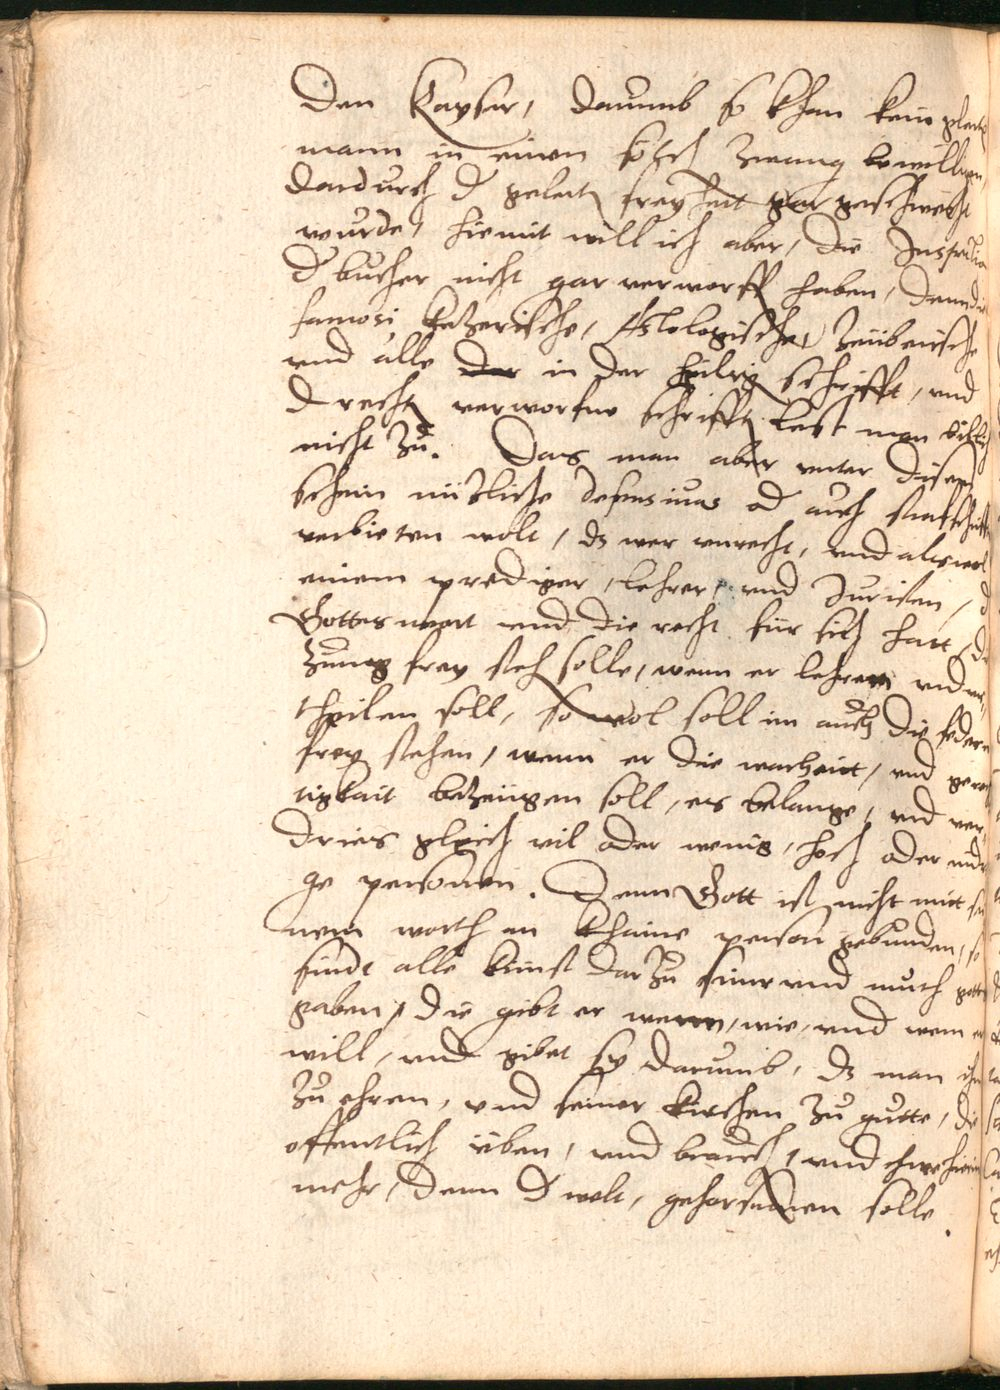 Den Kayser, darumb so khan kein glert
mann in einen solch zwang bewilligen,
dardurch d gelert freyheit gar geschwecht
wurde, hiemit will ich aber, die Inspection
d bucher nicht gar verworff haben, denn die
famosi, ketzerische, Astologische, Zeüberische
vnd alle der in der heilig schrifft, vnd
d recht verworfne schrifft lest man billich
nicht zu. Das man aber vnter disem
schein nützliche defensiuas od auch straffschrifft
verbieten wolt, dz wer vnrecht, vnd als wol
einem prediger, lehrer, vnd Juristen, d
Gottes wort vnd die recht für sich hatt, die
Zung frey steh solle, wenn er lehren vnd vr„
theilen soll, so wol soll im auch die feder
frey stehen, wenn er die warheitt, vnd gerech
tigkait bezeügen soll, es belange, vnd ver„
dries gleich vil oder wenig, hoch oder nidri
ge personen. Denn Gott ist nicht mitt sei
nem worth an khaine person gebunden, so
sindt alle künst darzu sinn vnd muth gottes
gaben, die gibt er wenn, wie, vnd wem er
will, vnd gibet sy darumb, dz man ihn
zu ehren, vnd seiner kirchen zu gutte, die
offentlich üben, vnd brauch, vnd ihme hierin
mehr, denn d welt, gehorsamen solle.